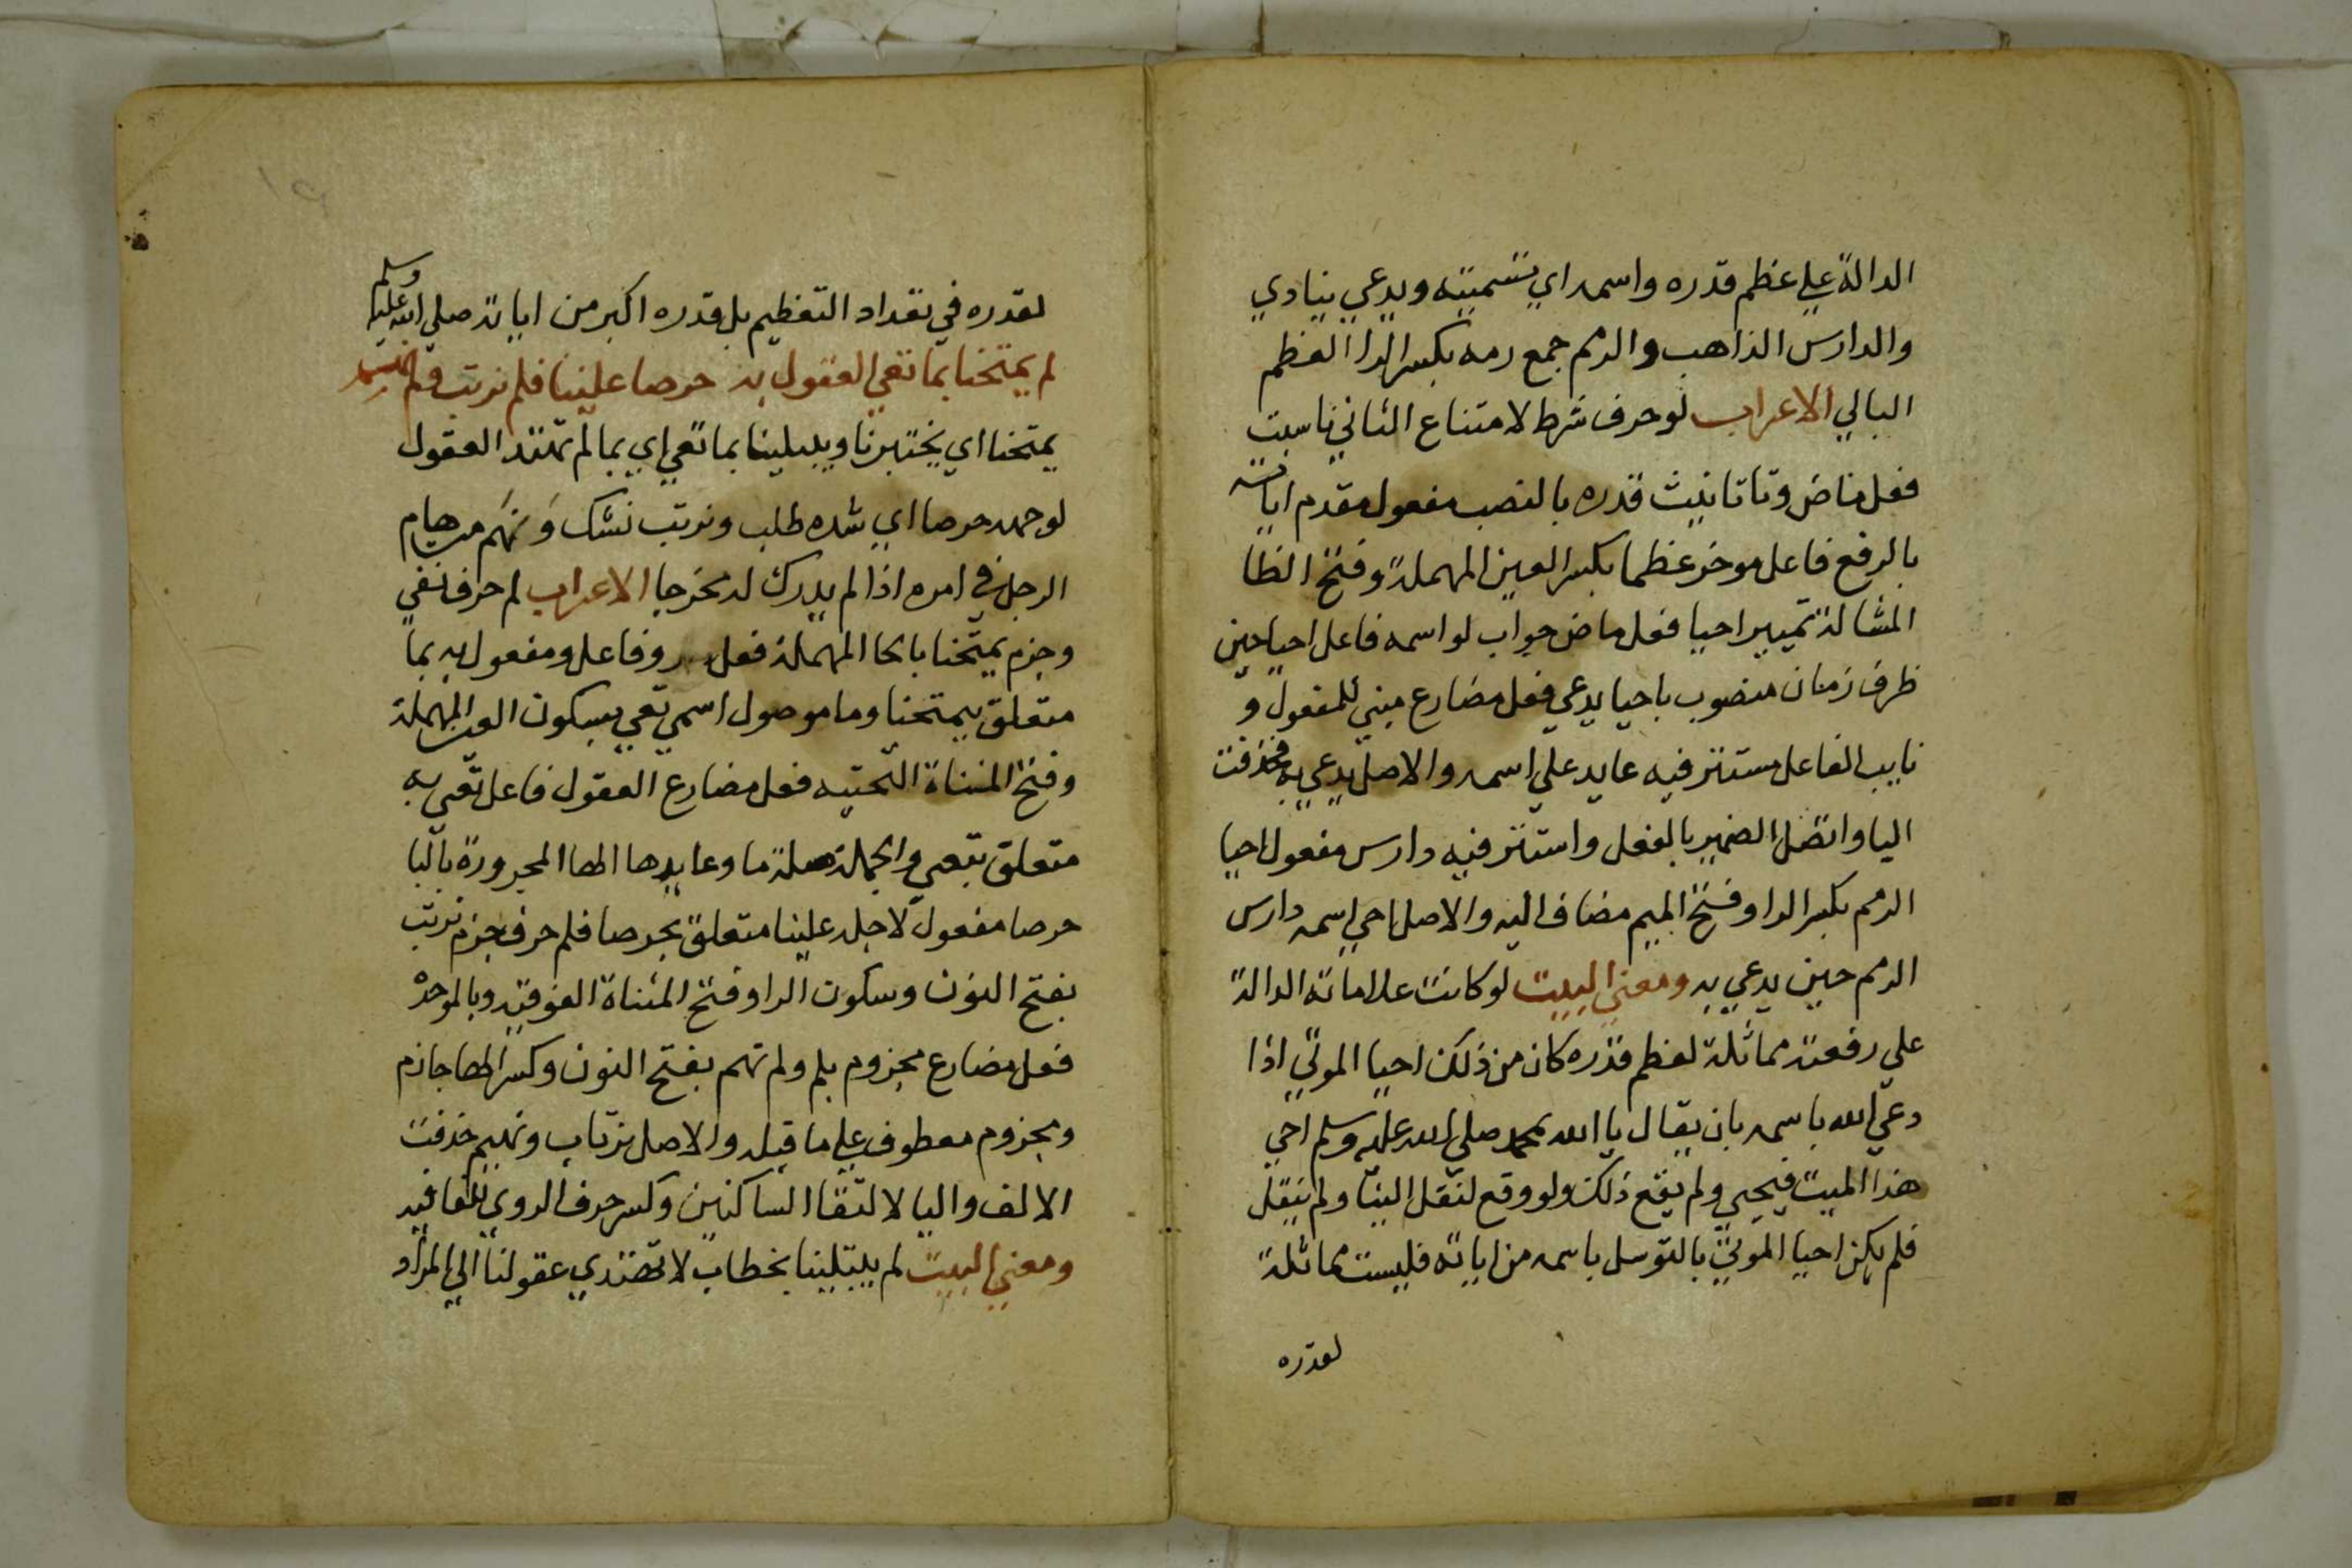 الدالة علي عظم قدره واسمه اي تسميته ويدعي ينادي
والدارس الذاهب والرمم جمع رمه بكسر الرا العظم
البالي الاعراب لو حرف شرط لامتناع الثاني ناسبت
فعل ماض وتا تانيث قدره بالنصب مفعول مقدم اياته
بالرفع فاعل موخر عظما بكسر العين المهملة وفتح الظا
المشالة تمييز احيا فعل ماض جواب لو اسمه فاعل احيا حين
ظرف زمان منصوب باحيا يدعي فعل مضارع مبني للمفعول و
نايب الفاعل مستتر فيه عايد علي اسمه والاصل يدعي به فحذفت
اليا واتصل الضمير بالفعل واستتر فيه دارس مفعول احيا
الرمم بكسر الرا وفتح الميم مضاف اليه والاصل احي اسمه دارس
الرمم حين يدعي به ومعني البيت لو كانت علاماته الدالة
علي رفعته مماثلة لعظم قدره كان من ذلك احيا الموتي اذا
دعي الله باسمه بان يقال يا الله بمحمد صلي الله عليه وسلم احي
هذا الميت فيحيي ولم يقع ذلك ولو وقع لنقل الينا ولم ينقل
فلم يكن احيا الموتي بالتوسل باسمه من اياته فليست مماثلة
لقدره
لقدره في تعداد التعظيم بل قدره اكبر من اياته صلي الله عليه وسلم
لم يمتحنا بما تعي العقول به حرصا علينا فلم نرتب ولم نهم
يمتحنا اي يختبرنا ويبلينا بما تعي اي بما لم تهتد العقول
لوجهه حرصا اي شده طلب ونرتب نشك ونهم من هام
الرجل في امره اذا لم يدرك له مخرجا الاعراب لم حرف نفي
وجزم يمتحنا بالحا المهملة فعل وفاعل ومفعول به بما
متعلق بيمتحنا وما موصول اسمي تعي بسكون العين المهملة
وفتح المثناة التحتيه فعل مضارع العقول فاعل تعي به
متعلق بتعي والجملة صلة ما وعايدها الها المجرورة بالبا
حرصا مفعول لاجله علينا متعلق بحرصا فلم حرف جزم نرتب
بفتح النون وسكون الرا وفتح المثناة الفوقيه وبالموحدة
فعل مضارع مجزوم بلم ولم نهم بفتح النون وكسر الها جازم
ومجزوم معطوف علي ما قبله والاصل نرتاب ونهيم حذفت
الالف واليا لالتقا الساكنين وكسر حرف الروي للقافيه
ومعني البيت لم يبتلينا بخطاب لا تهتدي عقولنا الي المراد